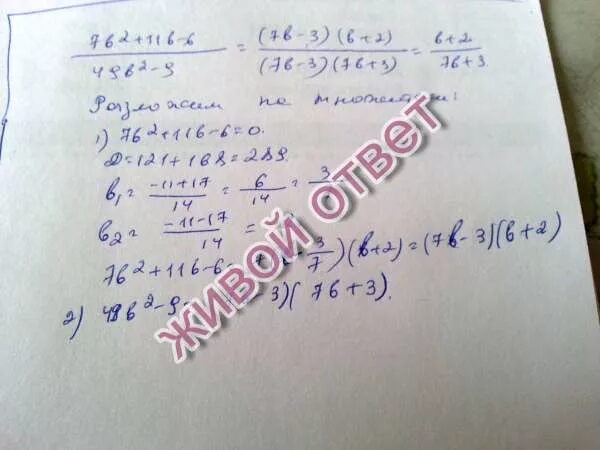 7b²+11b-6 / 49b²-9 = (7b-3)(b+2) / (7b-3)(7b+3) = b+2 / 7b+3
Разложим на множители:
1) 7b²+11b-6=0.
D=121+168=289.
b₁= -11+17 / 14 = 6 / 14 = 3 /
b₂= -11-17 / 14 =
7b²+11b-6= 3/7)(b+2)=(7b-3)(b+2)
2) 49b²-9 -3)(7b+3).
ЖИВОЙ ОТВЕТ